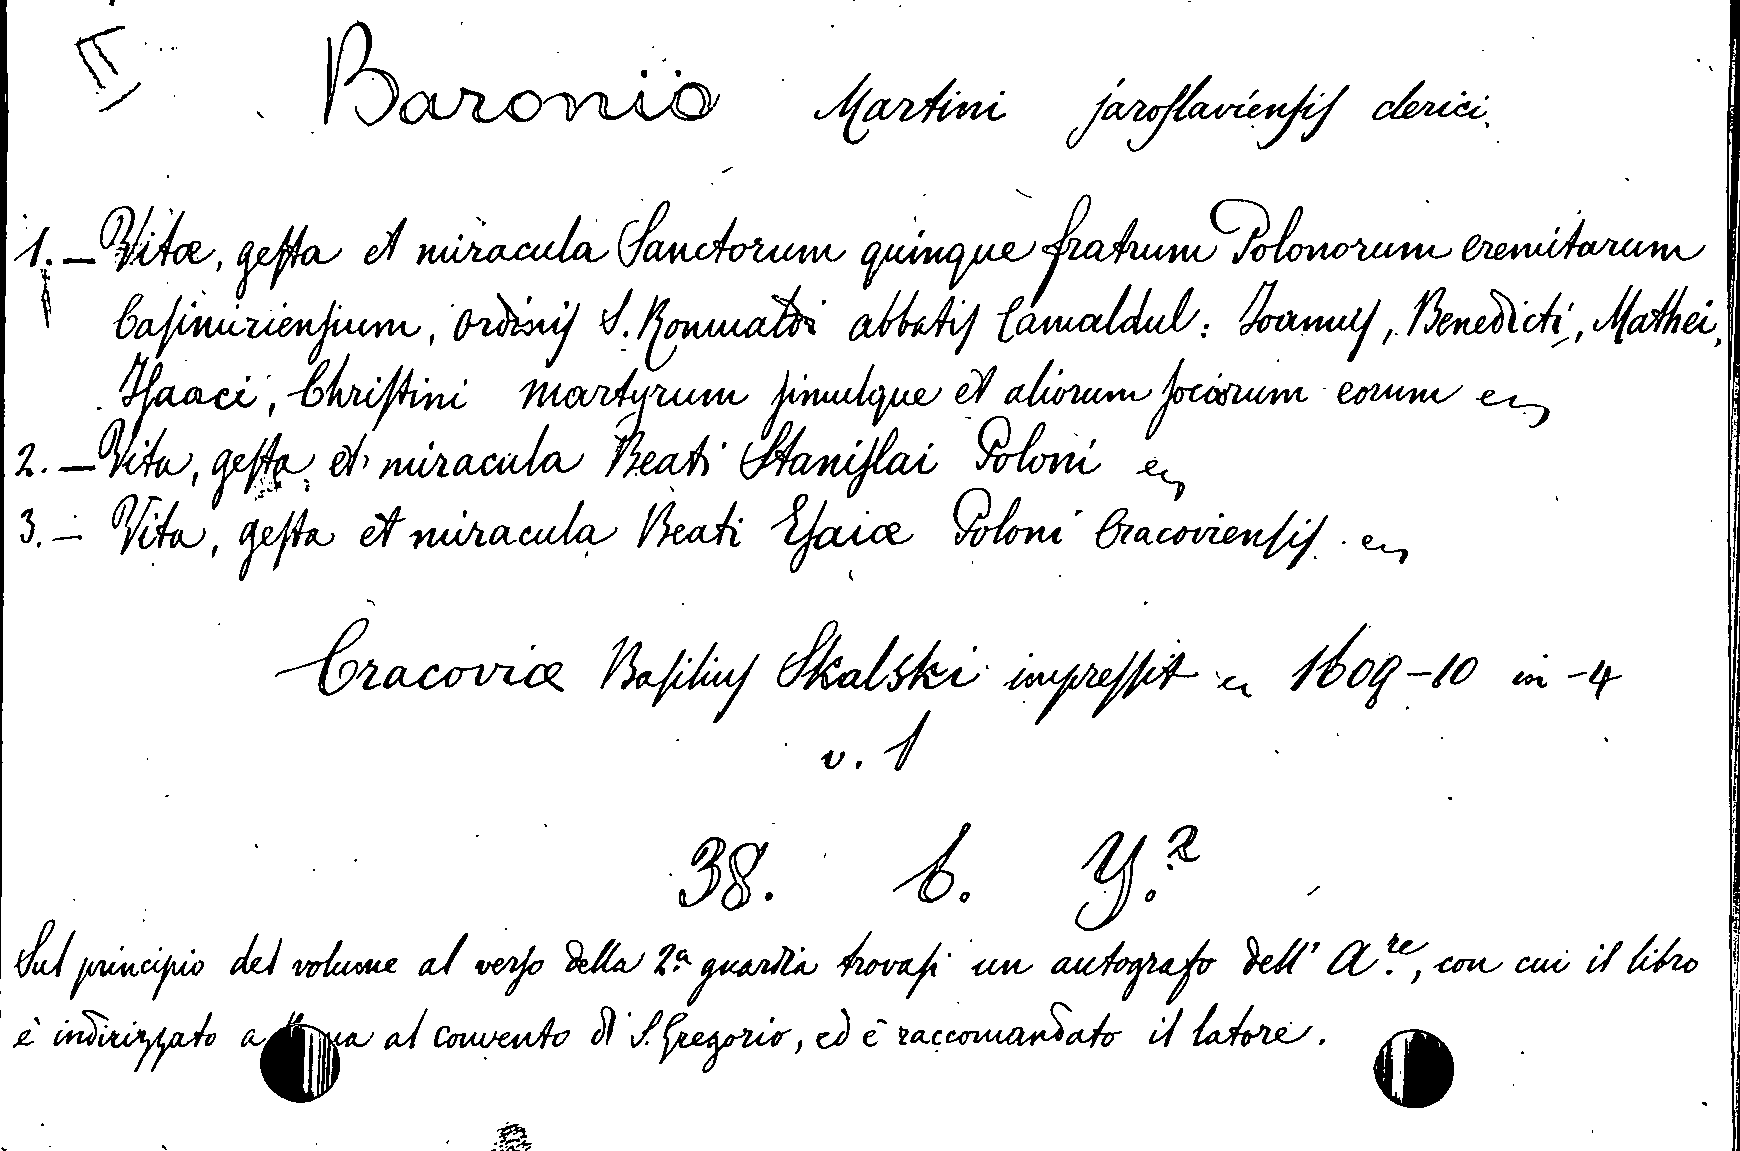 II
Baronio Martini jaroslaviensis clerici.
1. — Vitæ, gesta et miracula Sanctorum quinque fratrum Polonorum eremitarum
Casimiriensium, ordinis S. Romualdi abbatis Camaldul: Joannis, Benedicti, Mathei,
Isaaci, Christini martyrum simulque et aliorum sociorum eorum
2. — Vita, gesta et miracula Beati Stanislai Poloni
3. — Vita, gesta et miracula Beati Esaiæ Poloni Cracoviensis
Cracoviæ Basilius Skalski impressit 1609-10 in-4
v. 1
38. b. Y.²
Sul principio del volume al verso della 2ª guardia trovasi un autografo dell' A.re, con cui il libro
è indirizzato a al convento di S. Gregorio, ed è raccomandato il latore.